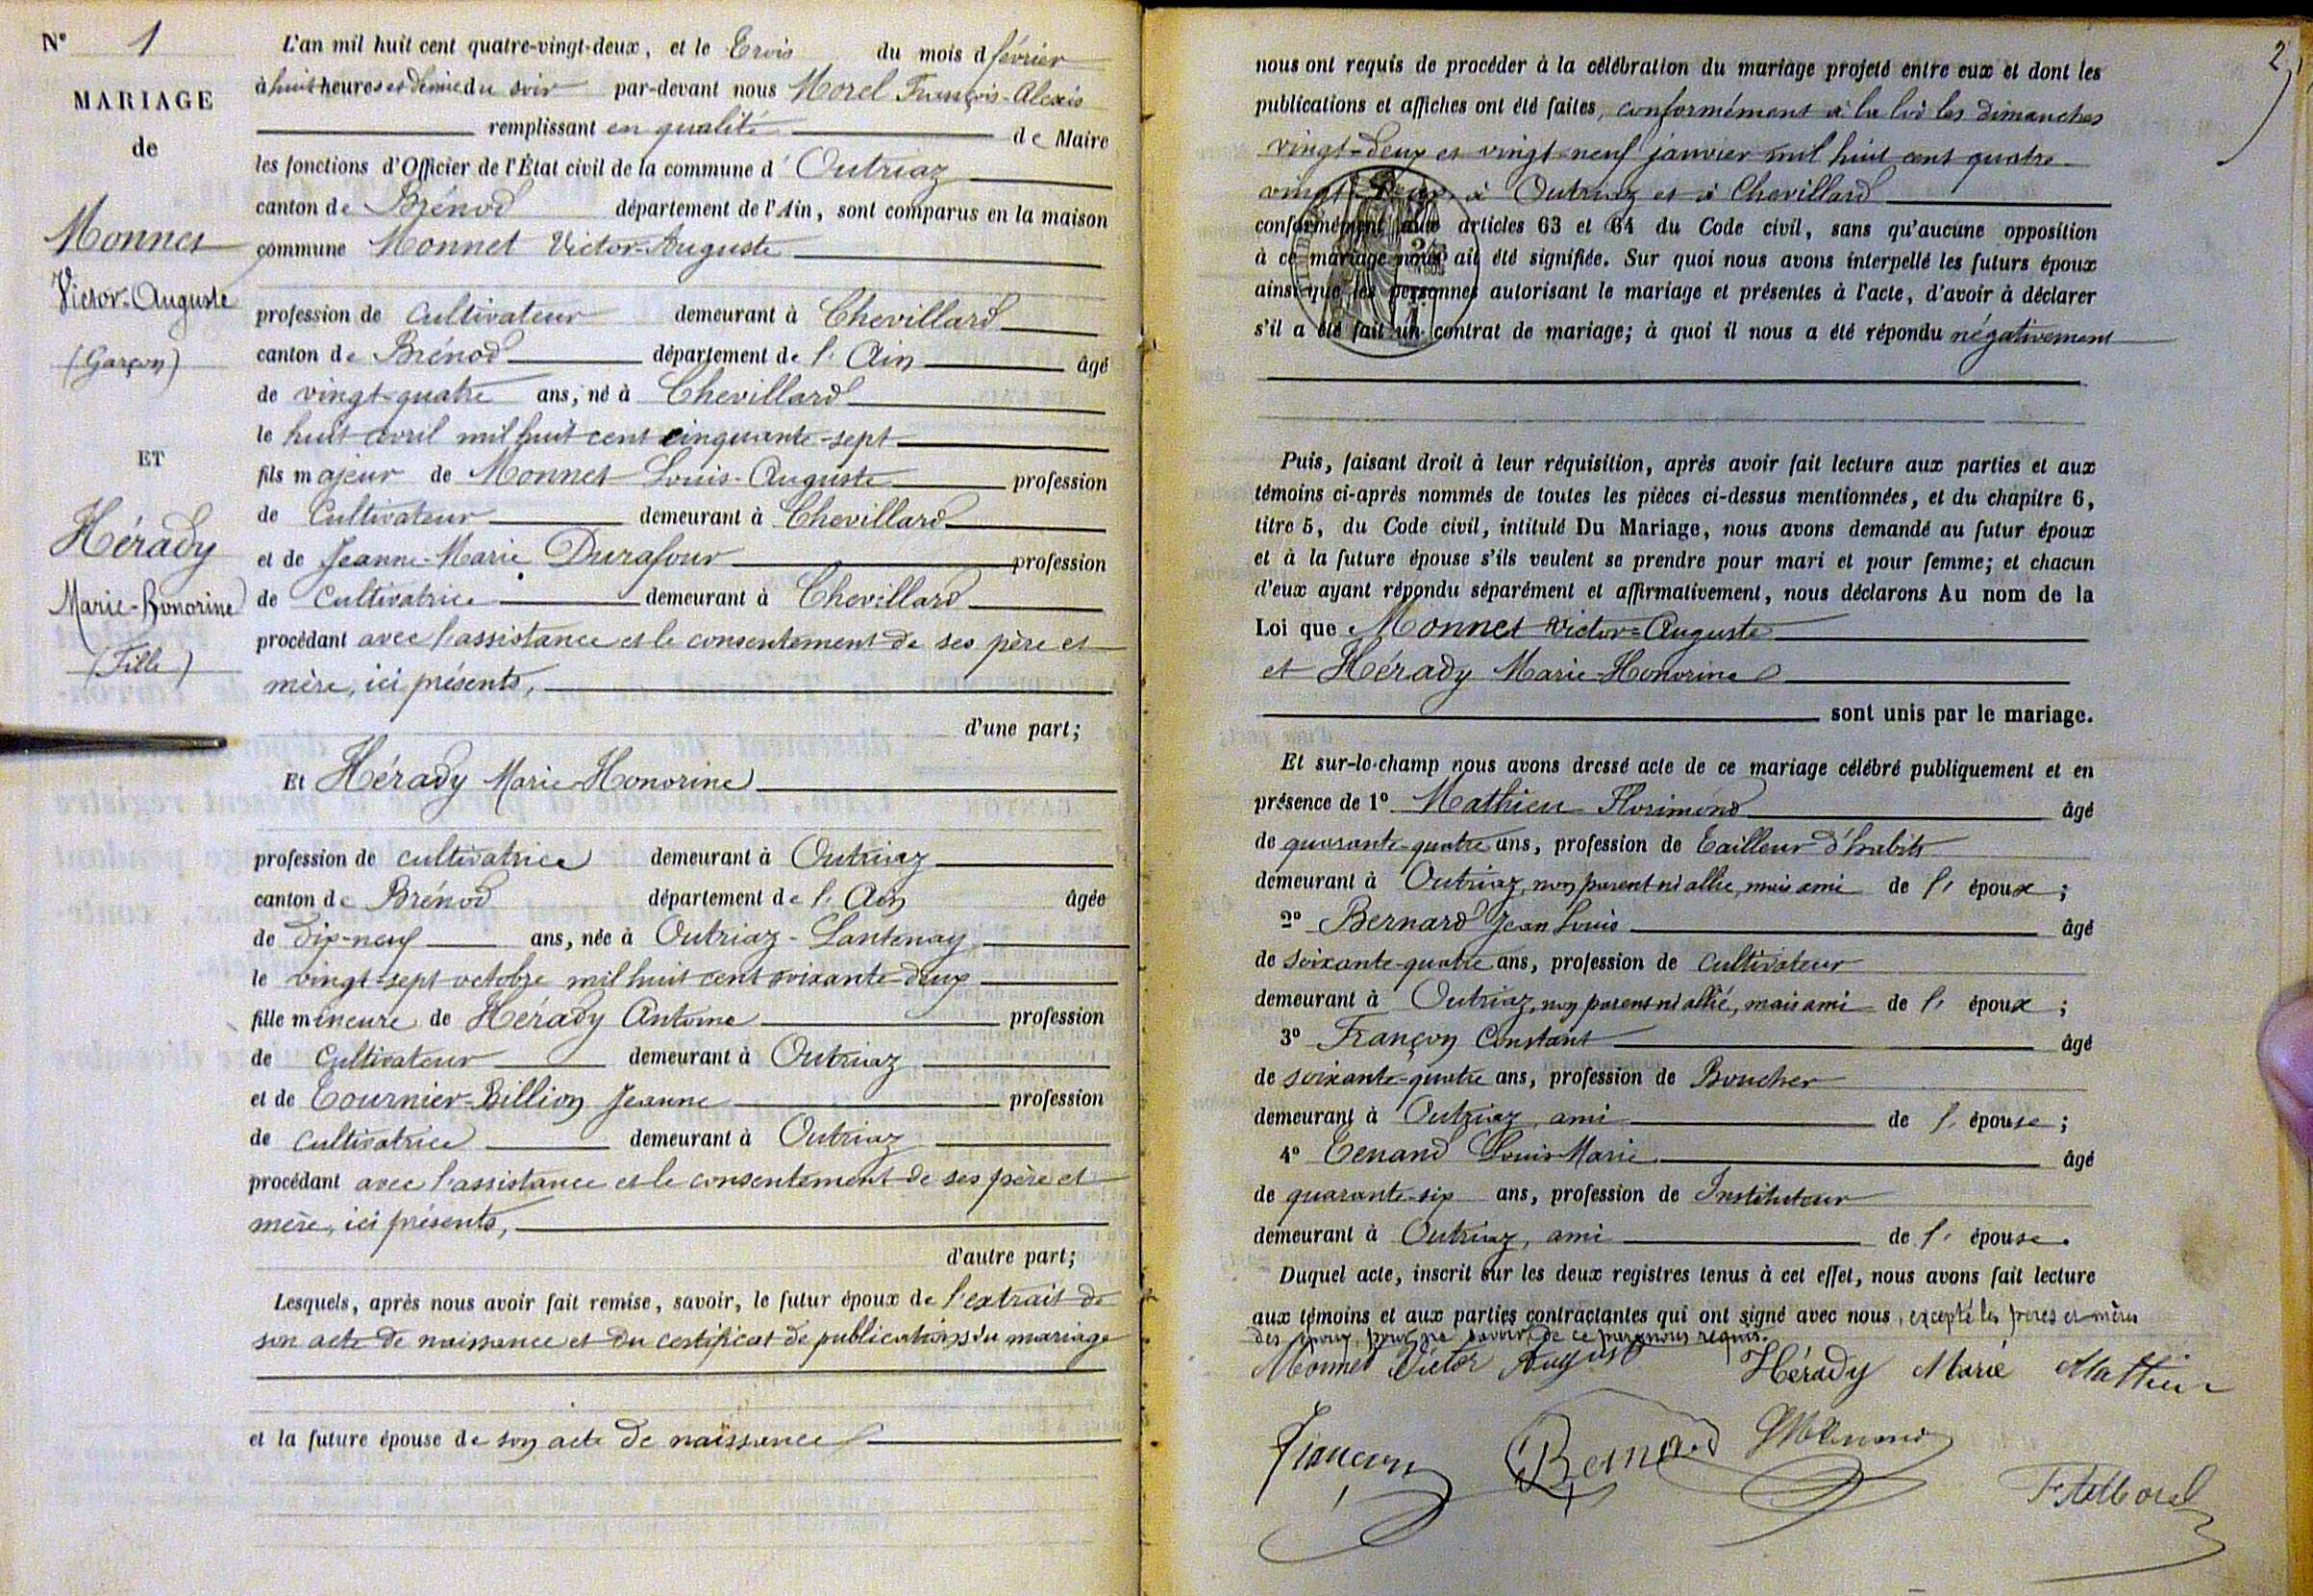 N° 1
MARIAGE
de
Monnet
Victor-Auguste
(Garçon)
ET
Hérady
Marie-Honorine
(Fille)
L'an mil huit cent quatre-vingt-deux, et le Trois du mois d février
à huit heures et demie du soir par-devant nous Morel François-Alexis
remplissant en qualité de Maire
les fonctions d'Officier de l'État civil de la commune d' Outriaz
canton de Brénod département de l'Ain, sont comparus en la maison
commune Monnet Victor-Auguste
profession de Cultivateur demeurant à Chevillard
canton de Brénod département de l'Ain âgé
de vingt-quatre ans, né à Chevillard
le huit avril mil huit cent cinquante-sept
fils majeur de Monnet Louis-Auguste profession
de Cultivateur demeurant à Chevillard
et de Jeanne-Marie Durafour profession
de Cultivatrice demeurant à Chevillard
procédant avec l'assistance et le consentement de ses père et
mère, ici présents,
d'une part;
Et Hérady Marie-Honorine
profession de cultivatrice demeurant à Outriaz
canton de Brénod département de l'Ain âgée
de dix-neuf ans, née à Outriaz-Lantenay
le vingt-sept octobre mil huit cent soixante-deux
fille mineure de Hérady Antoine profession
de Cultivateur demeurant à Outriaz
et de Tournier-Billion Jeanne profession
de cultivatrice demeurant à Outriaz
procédant avec l'assistance et le consentement de ses père et
mère, ici présents,
d'autre part;
Lesquels, après nous avoir fait remise, savoir, le futur époux de l'extrait de
son acte de naissance et du certificat de publications du mariage
et la future épouse de son acte de naissance
2
nous ont requis de procéder à la célébration du mariage projeté entre eux et dont les
publications et affiches ont été faites, conformément à la loi les dimanches
vingt-deux et vingt-neuf janvier mil huit cent quatre-
vingt-deux, à Outriaz et à Chevillard
conformément aux articles 63 et 64 du Code civil, sans qu'aucune opposition
à ce mariage nous ait été signifiée. Sur quoi nous avons interpellé les futurs époux
ainsi que les personnes autorisant le mariage et présentes à l'acte, d'avoir à déclarer
s'il a été fait un contrat de mariage; à quoi il nous a été répondu négativement
Puis, faisant droit à leur réquisition, après avoir fait lecture aux parties et aux
témoins ci-après nommés de toutes les pièces ci-dessus mentionnées, et du chapitre 6,
titre 5, du Code civil, intitulé Du Mariage, nous avons demandé au futur époux
et à la future épouse s'ils veulent se prendre pour mari et pour femme; et chacun
d'eux ayant répondu séparément et affirmativement, nous déclarons Au nom de la
Loi que Monnet Victor-Auguste
et Hérady Marie-Honorine
sont unis par le mariage.
Et sur-le-champ nous avons dressé acte de ce mariage célébré publiquement et en
présence de 1° Mathieu Florimond âgé
de quarante-quatre ans, profession de Tailleur d'habits
demeurant à Outriaz, non parent ni allié, mais ami de l' époux;
2° Bernard Jean Louis âgé
de soixante-quatre ans, profession de Cultivateur
demeurant à Outriaz, non parent ni allié, mais ami de l' époux;
3° Françon Constant âgé
de soixante-quatre ans, profession de Boucher
demeurant à Outriaz, ami de l' épouse;
4° Tenand Louis-Marie âgé
de quarante-six ans, profession de Instituteur
demeurant à Outriaz, ami de l' épouse.
Duquel acte, inscrit sur les deux registres tenus à cet effet, nous avons fait lecture
aux témoins et aux parties contractantes qui ont signé avec nous, excepté les pères et mères
des époux, pour ne savoir, de ce par nous requis.
Monnet Victor August Hérady Marie Mathieu
Françon Bernard LMTenand
FAMorel